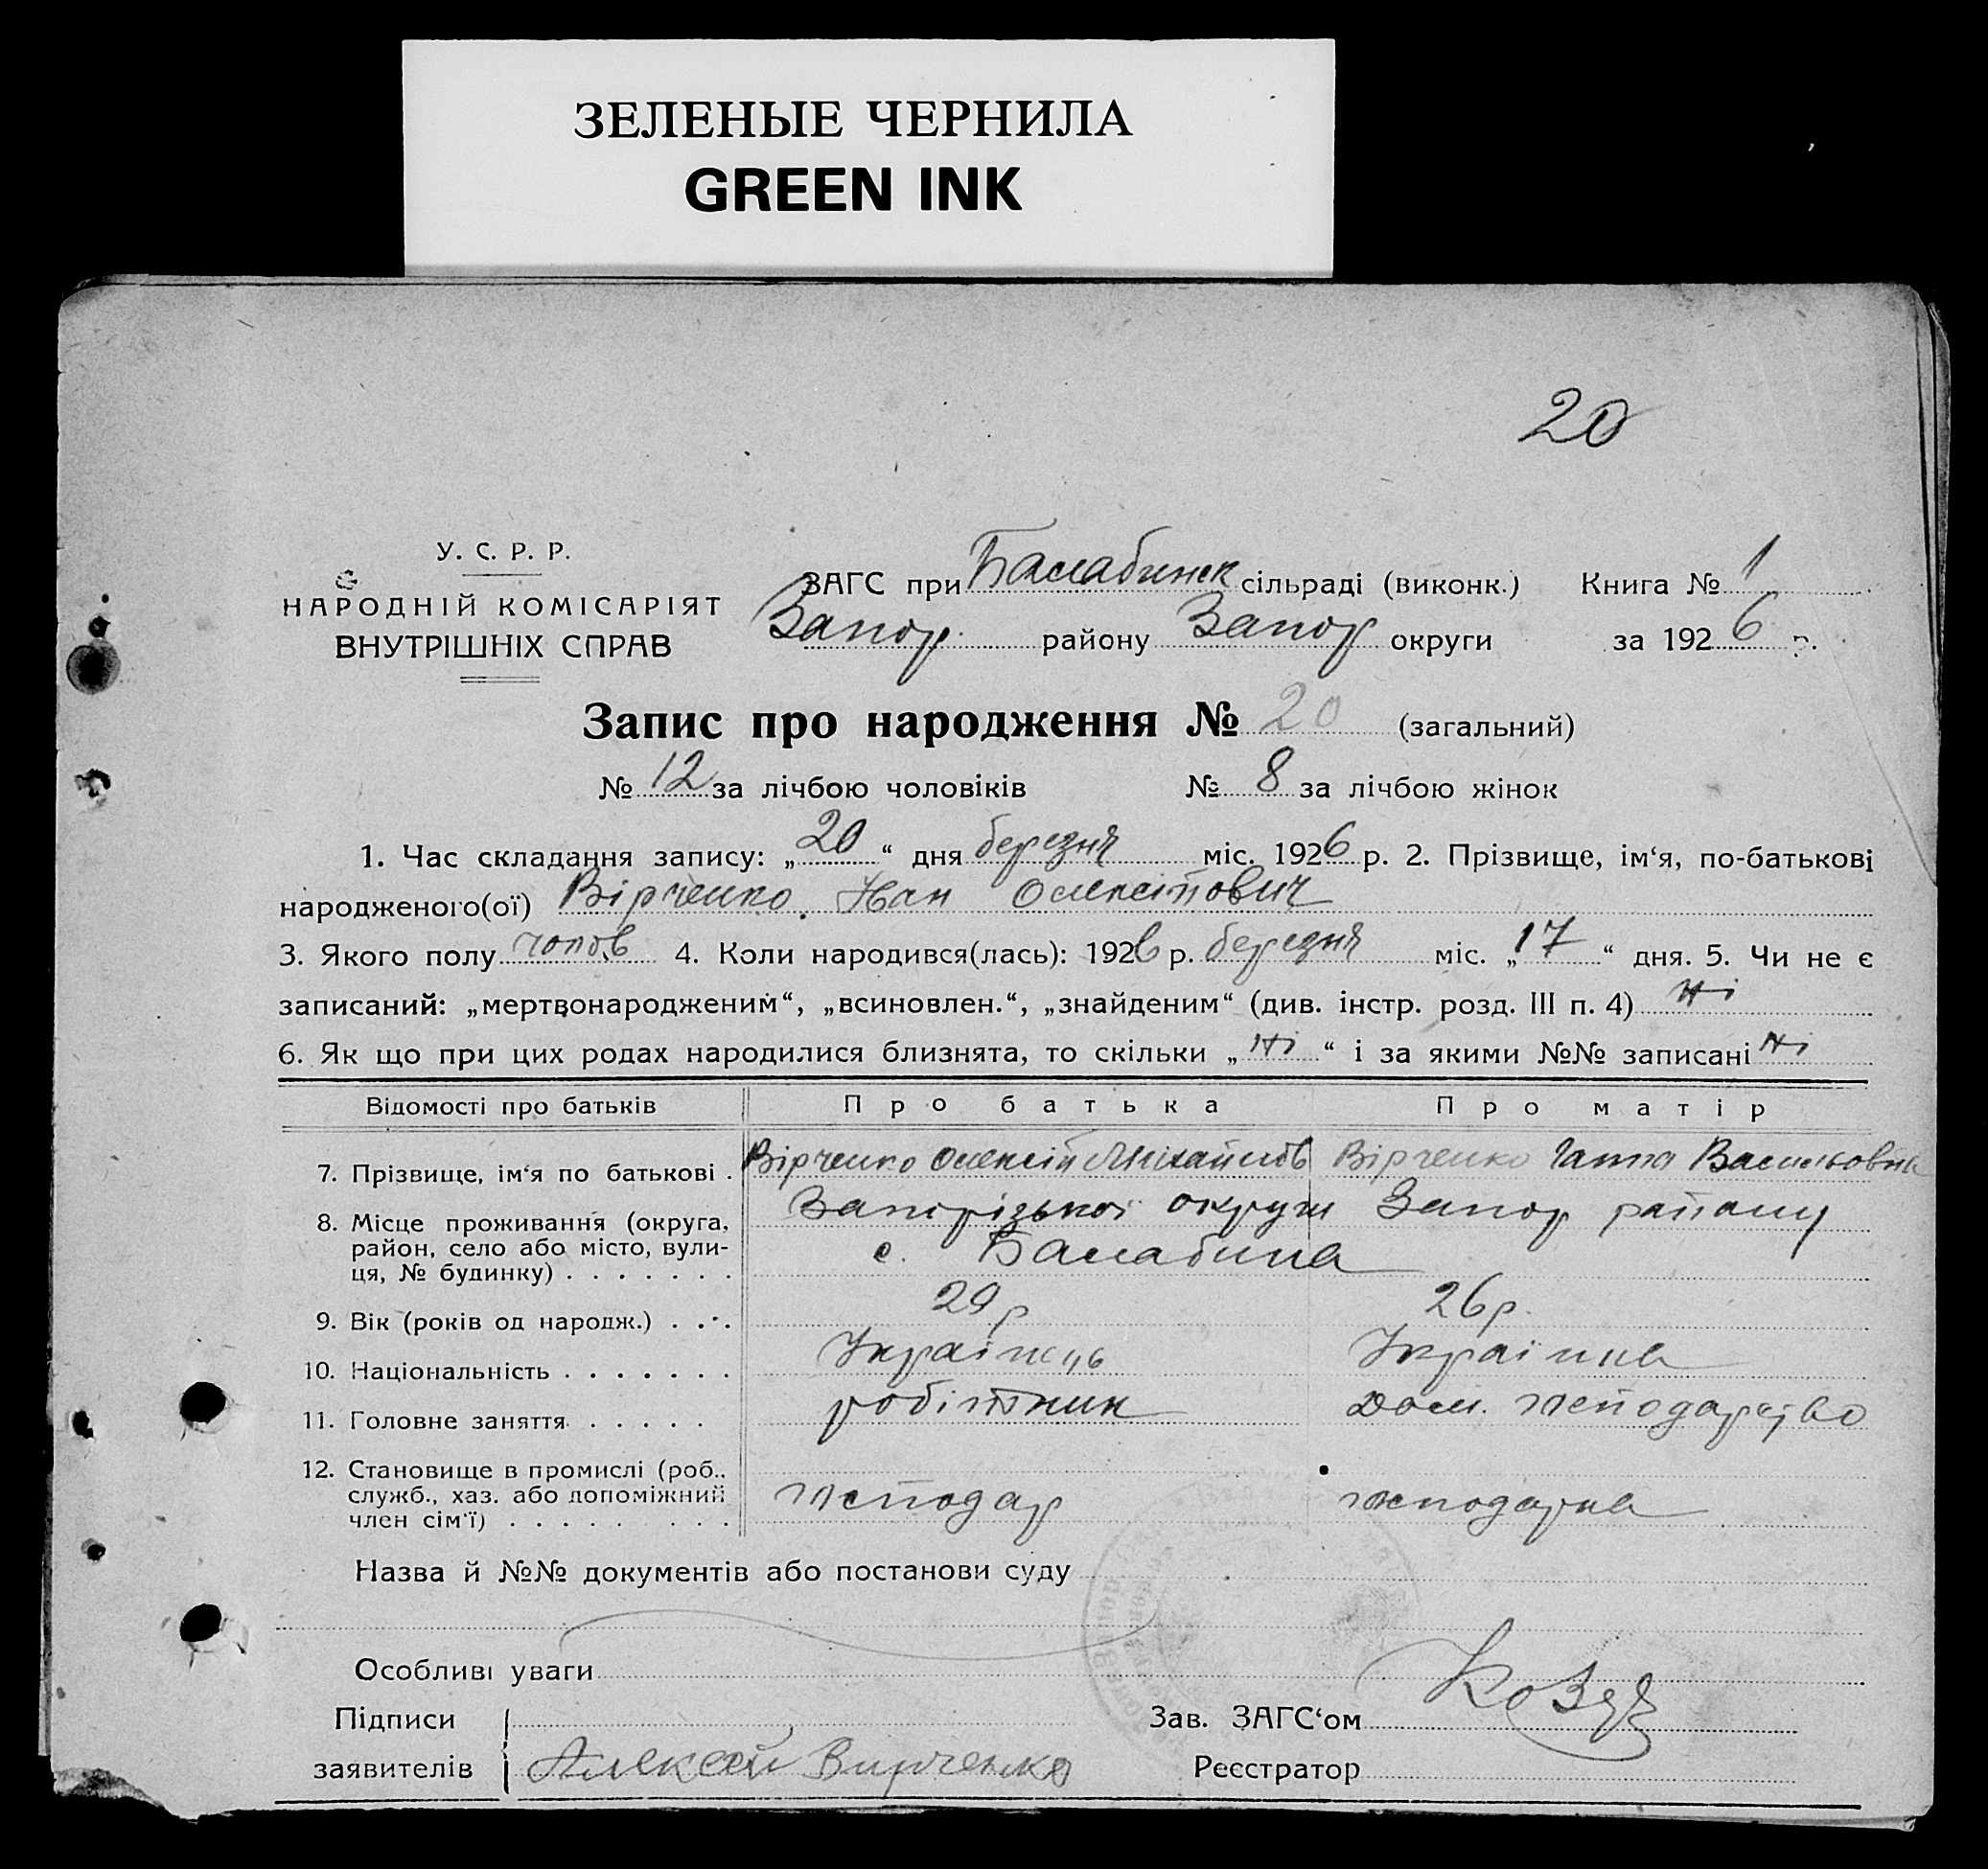 ЗЕЛЕНЫЕ ЧЕРНИЛА
GREEN INK
20
У. С. Р. Р.
НАРОДНІЙ КОМІСАРІЯТ
ВНУТРІШНІХ СПРАВ
ЗАГС при Балабинск сільраді (виконк.) Книга № 1
Запор. району Запор округи за 1926 р.
Запис про народження № 20 (загальний)
№ 12 за лічбою чоловіків № 8 за лічбою жінок
1. Час складання запису: „20“ дня березня міс. 1926 р. 2. Прізвище, ім‘я, по-батькові
народженого(ої) Вірченко Іван Олексійович
3. Якого полу чолов 4. Коли народився(лась): 1926 р. березня міс. „17“ дня. 5. Чи не є
записаний: „мертвонародженим“, „всиновлен.“, „знайденим“ (див. інстр. розд. III п. 4) Ні
6. Як що при цих родах народилися близнята, то скільки „Ні“ і за якими №№ записані Ні
Відомості про батьків Про батька Про матір
7. Прізвище, ім‘я по батькові . Вірченко Олексій Михайлов Вірченко Ганна Васильовна
8. Місце проживання (округа, Запорізької округи Запор району
район, село або місто, вули- с. Балабина
ця, № будинку) . . . . . . .
9. Вік (років од народж.) . . . 29 р 26 р.
10. Національність . . . . . . . Українець Українка
11. Головне заняття . . . . . робітник Дом. господарство
12. Становище в промислі (роб.,
служб., хаз. або допоміжний господар господарка
член сім‘ї) . . . . . . . . .
Назва й №№ документів або постанови суду
Особливі уваги
Підписи Зав. ЗАГС‘ом
заявителів Алексей Вирченко Реєстратор